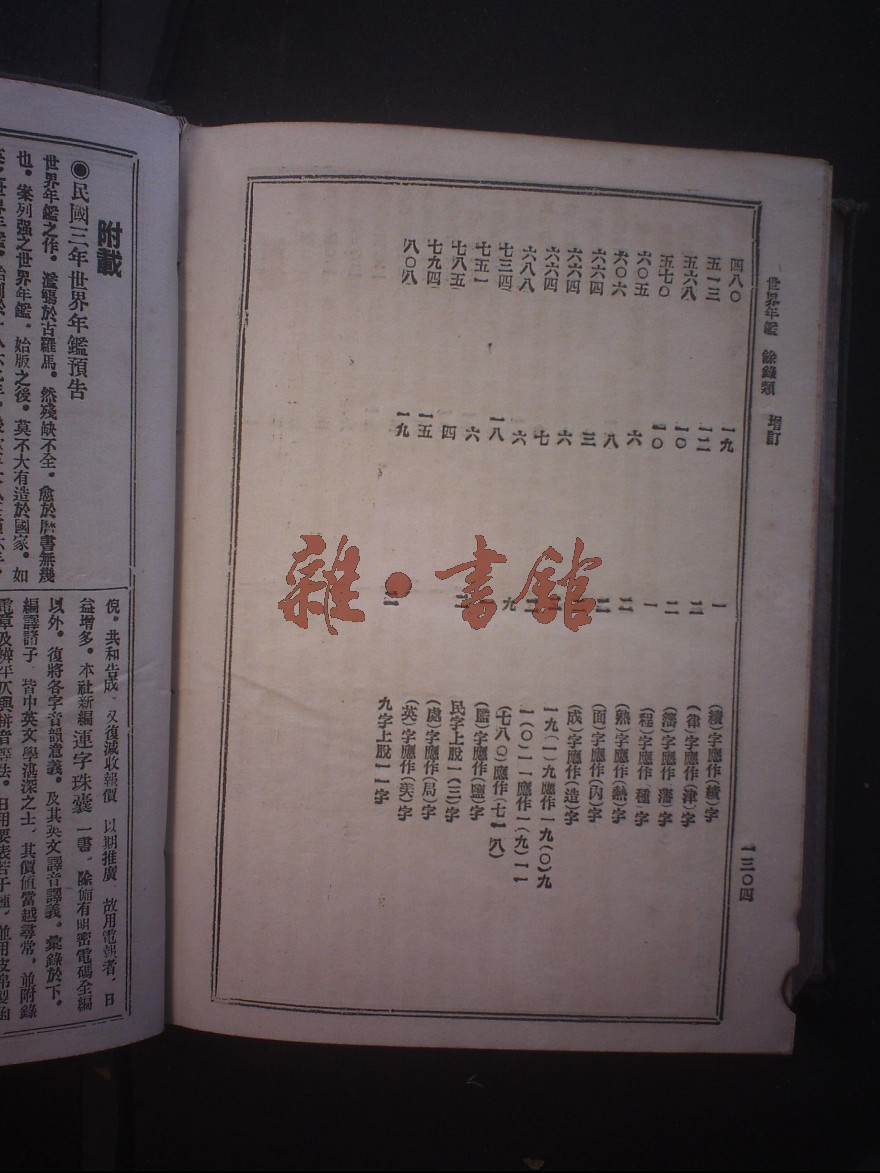 世界年鑑 餘錄類 增訂 一三〇四
四八〇 一九 一 (績)字應作(續)字
五一三 一二 二 (律)字應作(津)字
五六八 一〇 二 (潘)字應作(瀋)字
五七〇 一〇 一 (程)字應作(種)字
六〇五 六 二 (熟)字應作(熱)字
六〇六 八 二 (面)字應作(內)字
六六四 三 (成)字應作(造)字
六六四 六 一九(一)九應作一九(〇)九
六六四 七 一(〇)一一應作一(九)一一
六八八 六 九 (七八〇)應作(七一八)
七三四 一八 (監)字應作(鹽)字
七五一 六 民字上脫一(三)字
七八五 四 (處)字應作(局)字
七九四 一五 (英)字應作(美)字
八〇八 一九 九字上脫一一字
雜·書館
附載
◉民國三年世界年鑑預告
世界年鑑之作。濫觴於古羅馬。然殘缺不全。愈於曆書無幾
也。案列强之世界年鑑。始版之後。莫不大有造於國家。如
倪。共和告成。又復減收報價。以期推廣。故用電報者。日
益增多。本社新編運字珠囊一書。除備有明密電碼全編
以外。復將各字音韻意義。及其英文譯音譯義。彙錄於下。
編譯諸子。皆中英文學湛深之士。其價值當越尋常。並附錄